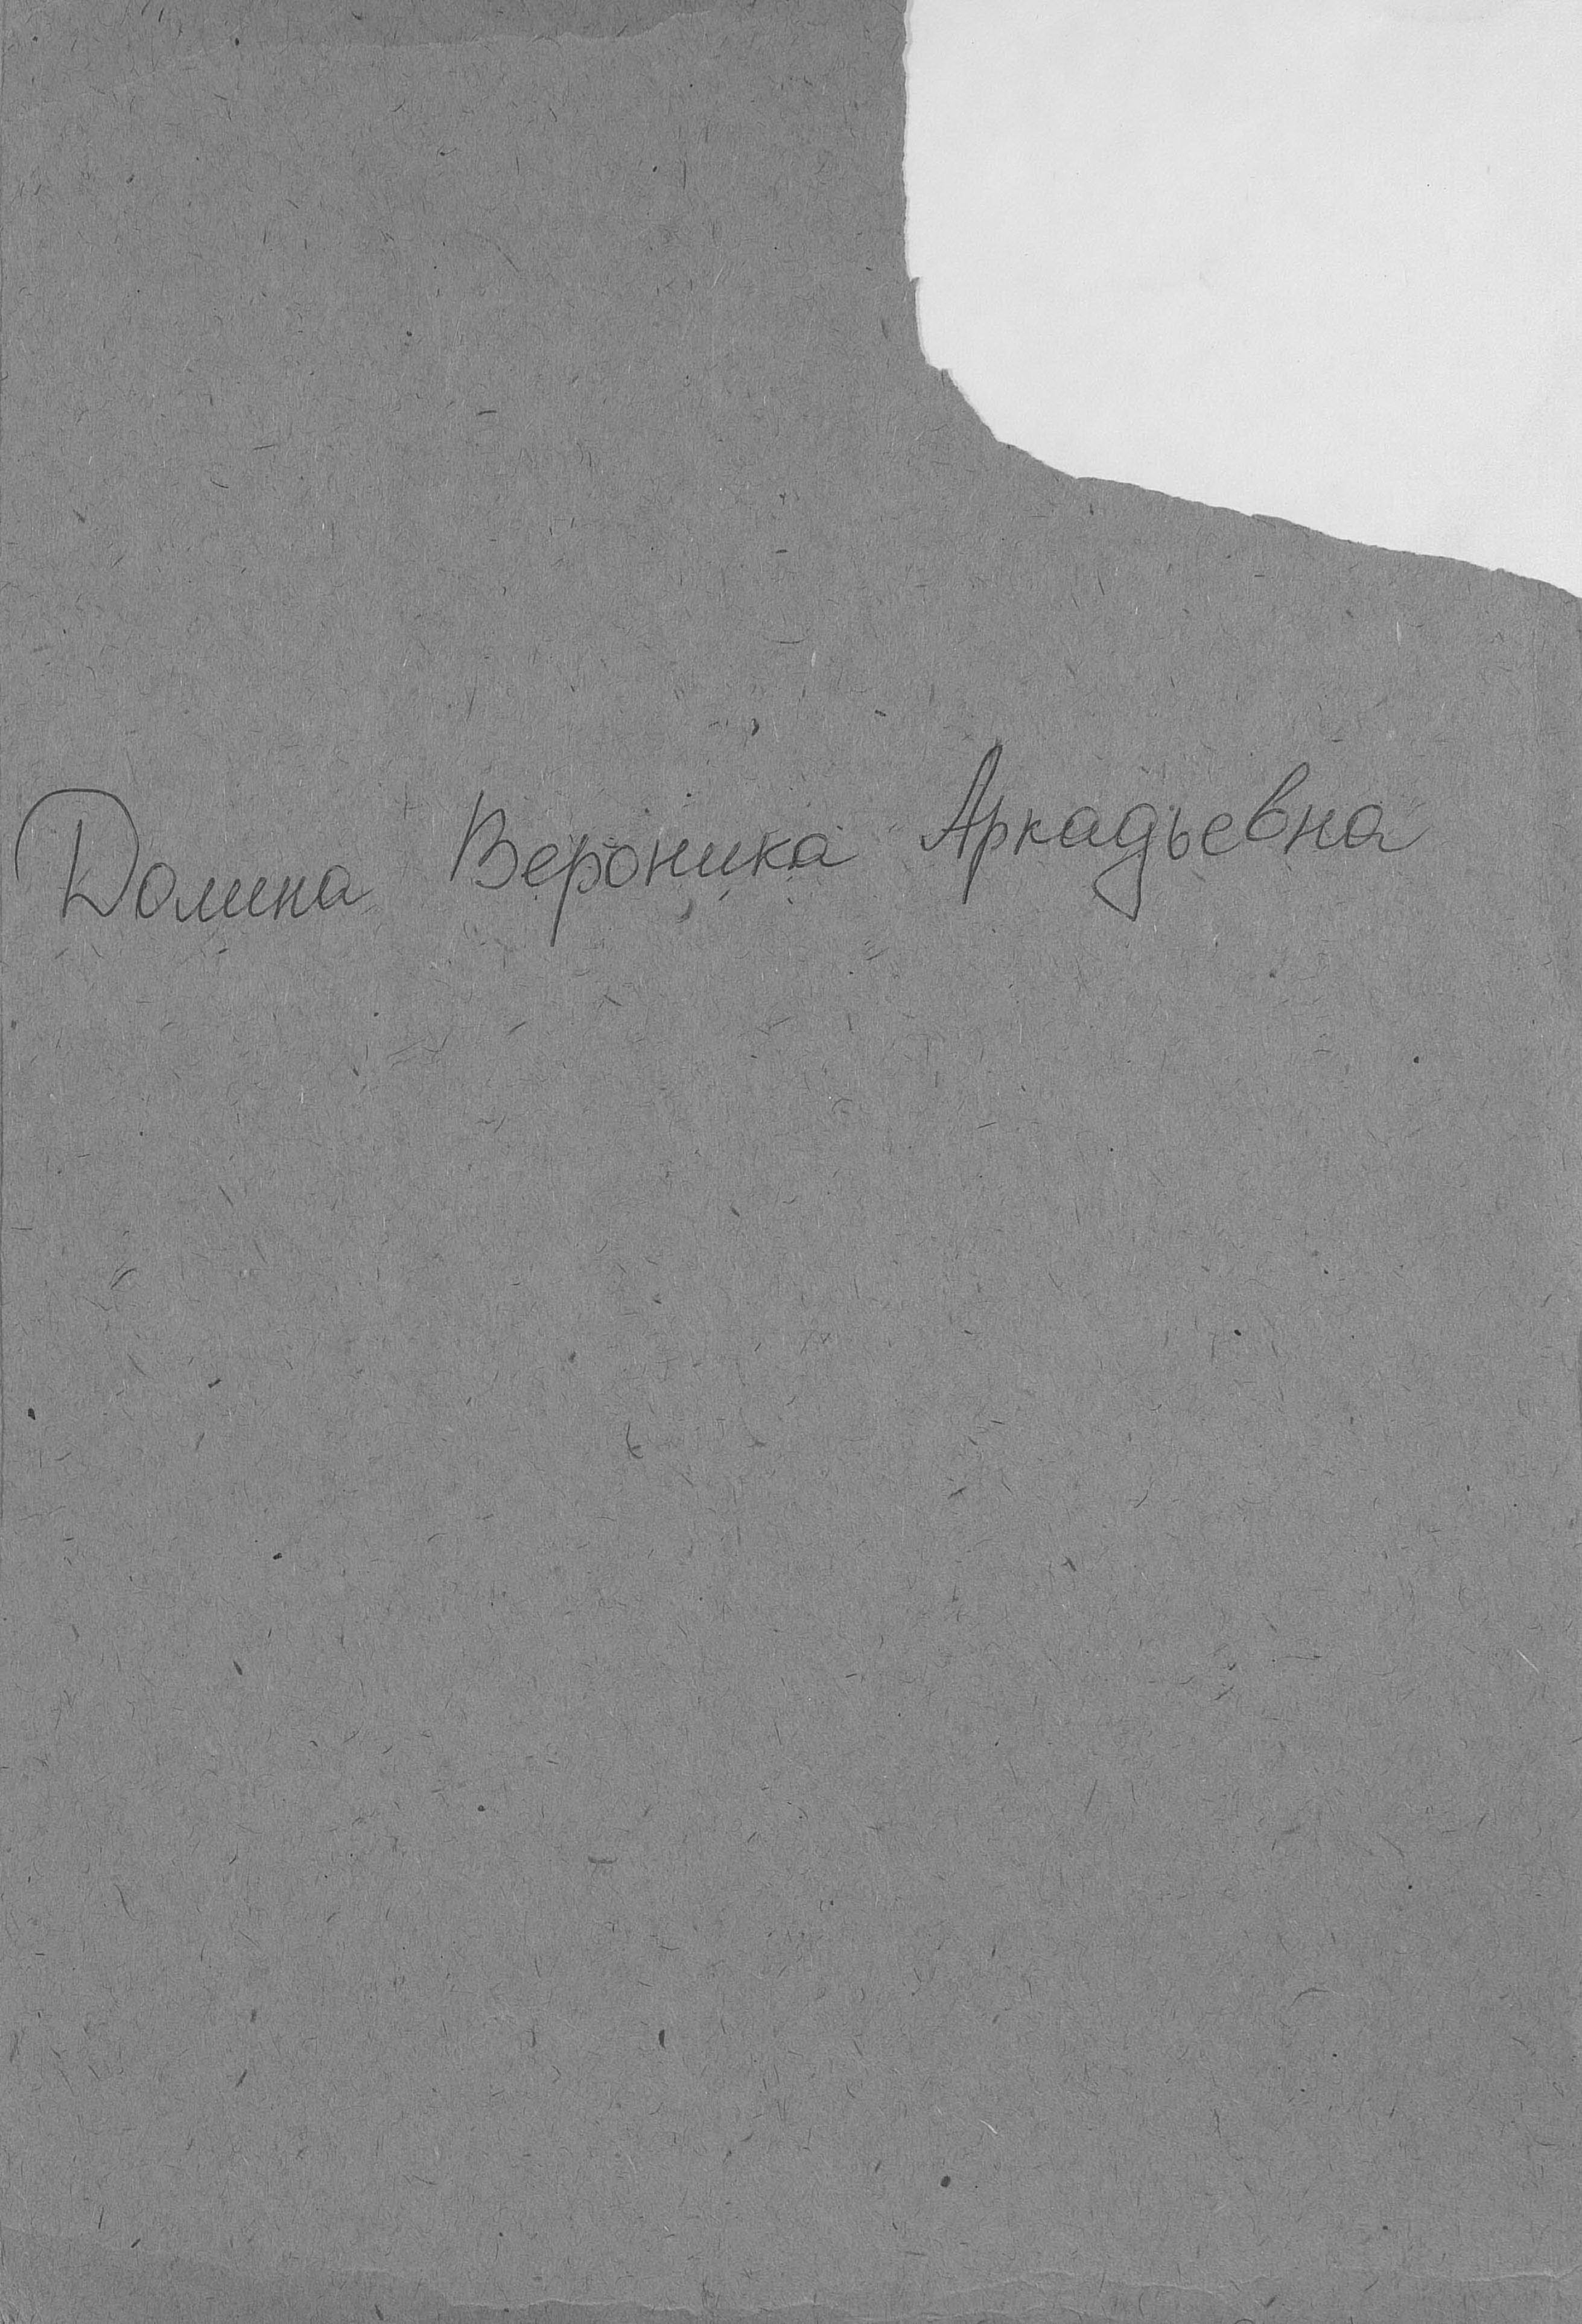 Долина Вероника Аркадьевна